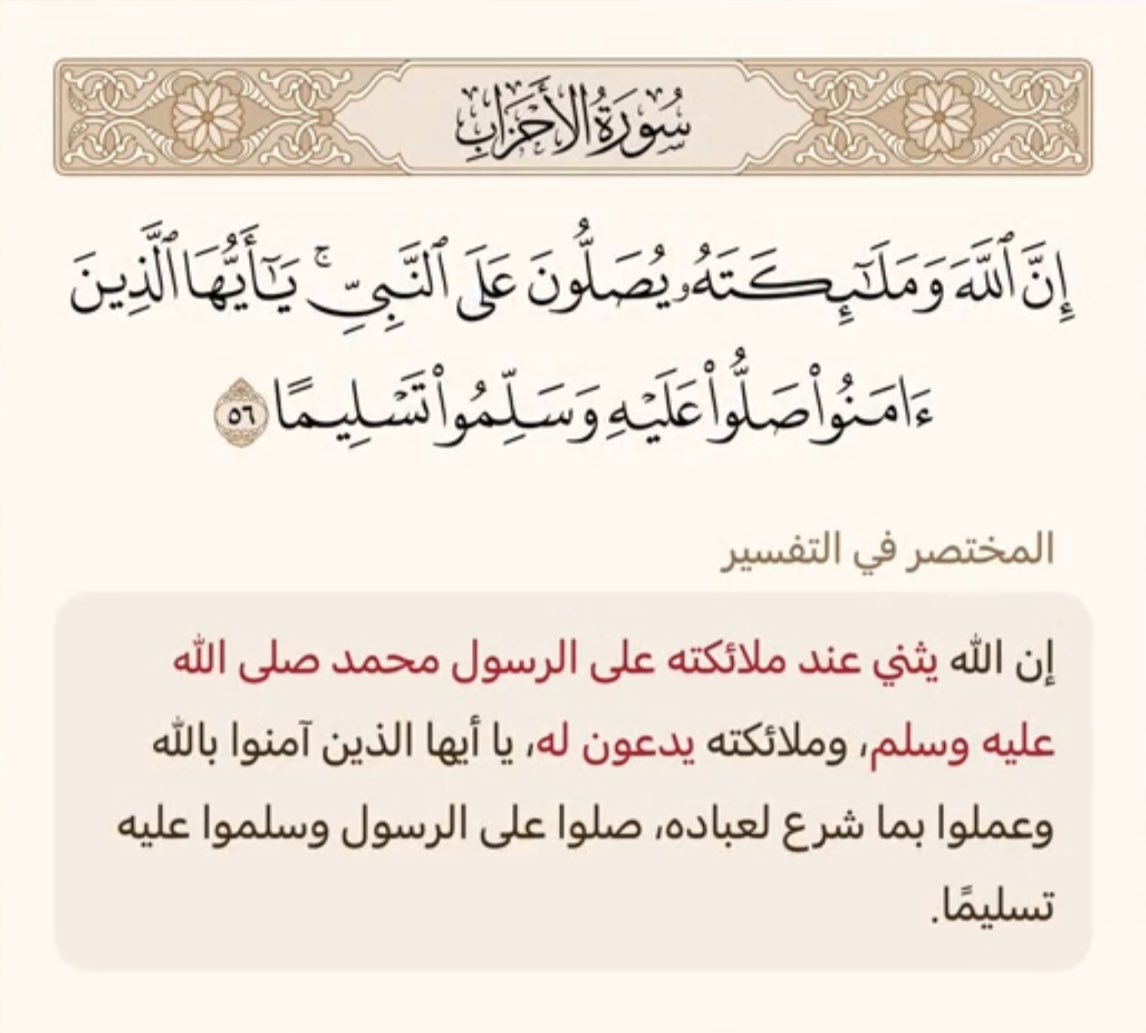 سُورَةُ الأَحْزَابِ
إِنَّ ٱللَّهَ وَمَلَٰٓئِكَتَهُۥ يُصَلُّونَ عَلَى ٱلنَّبِيِّۚ يَٰٓأَيُّهَا ٱلَّذِينَ
ءَامَنُوا۟ صَلُّوا۟ عَلَيْهِ وَسَلِّمُوا۟ تَسْلِيمًا ٥٦
المختصر في التفسير
إن الله يثني عند ملائكته على الرسول محمد صلى الله
عليه وسلم، وملائكته يدعون له، يا أيها الذين آمنوا بالله
وعملوا بما شرع لعباده، صلوا على الرسول وسلموا عليه
تسليمًا.